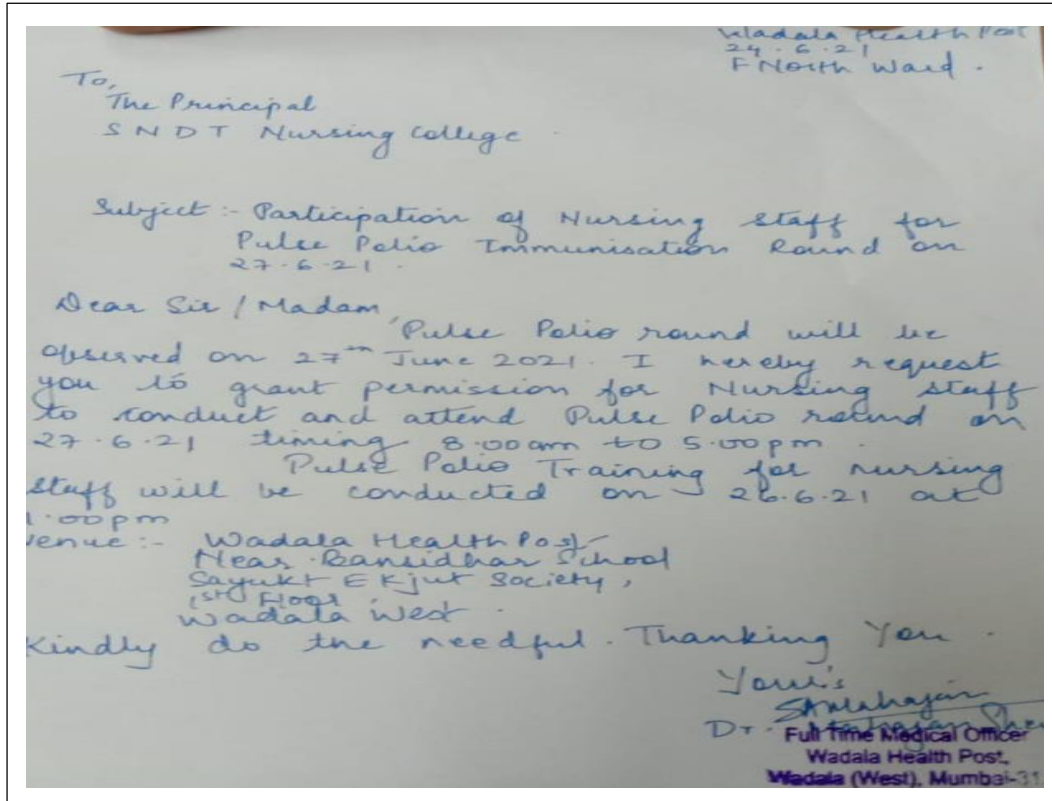 Wadala Health Post
24.6.21
F North Ward.
To,
The Principal
SNDT Nursing College.
Subject :- Participation of Nursing staff for
Pulse Polio Immunisation Round on
27.6.21.
Dear Sir / Madam,
Pulse Polio round will be
observed on 27th June 2021. I hereby request
you to grant permission for Nursing staff
to conduct and attend Pulse Polio round on
27.6.21 timing 8.00am to 5.00pm.
Pulse Polio Training for nursing
staff will be conducted on 26.6.21 at
1.00pm
Venue :- Wadala Health Post
Near Bansidhar School
Sayukt Ekjut Society,
1st Floor
Wadala West.
Kindly do the needful. Thanking You.
Your's
SAMahajan
Dr. Mahajan
Full Time Medical Officer
Wadala Health Post,
Wadala (West), Mumbai-31.